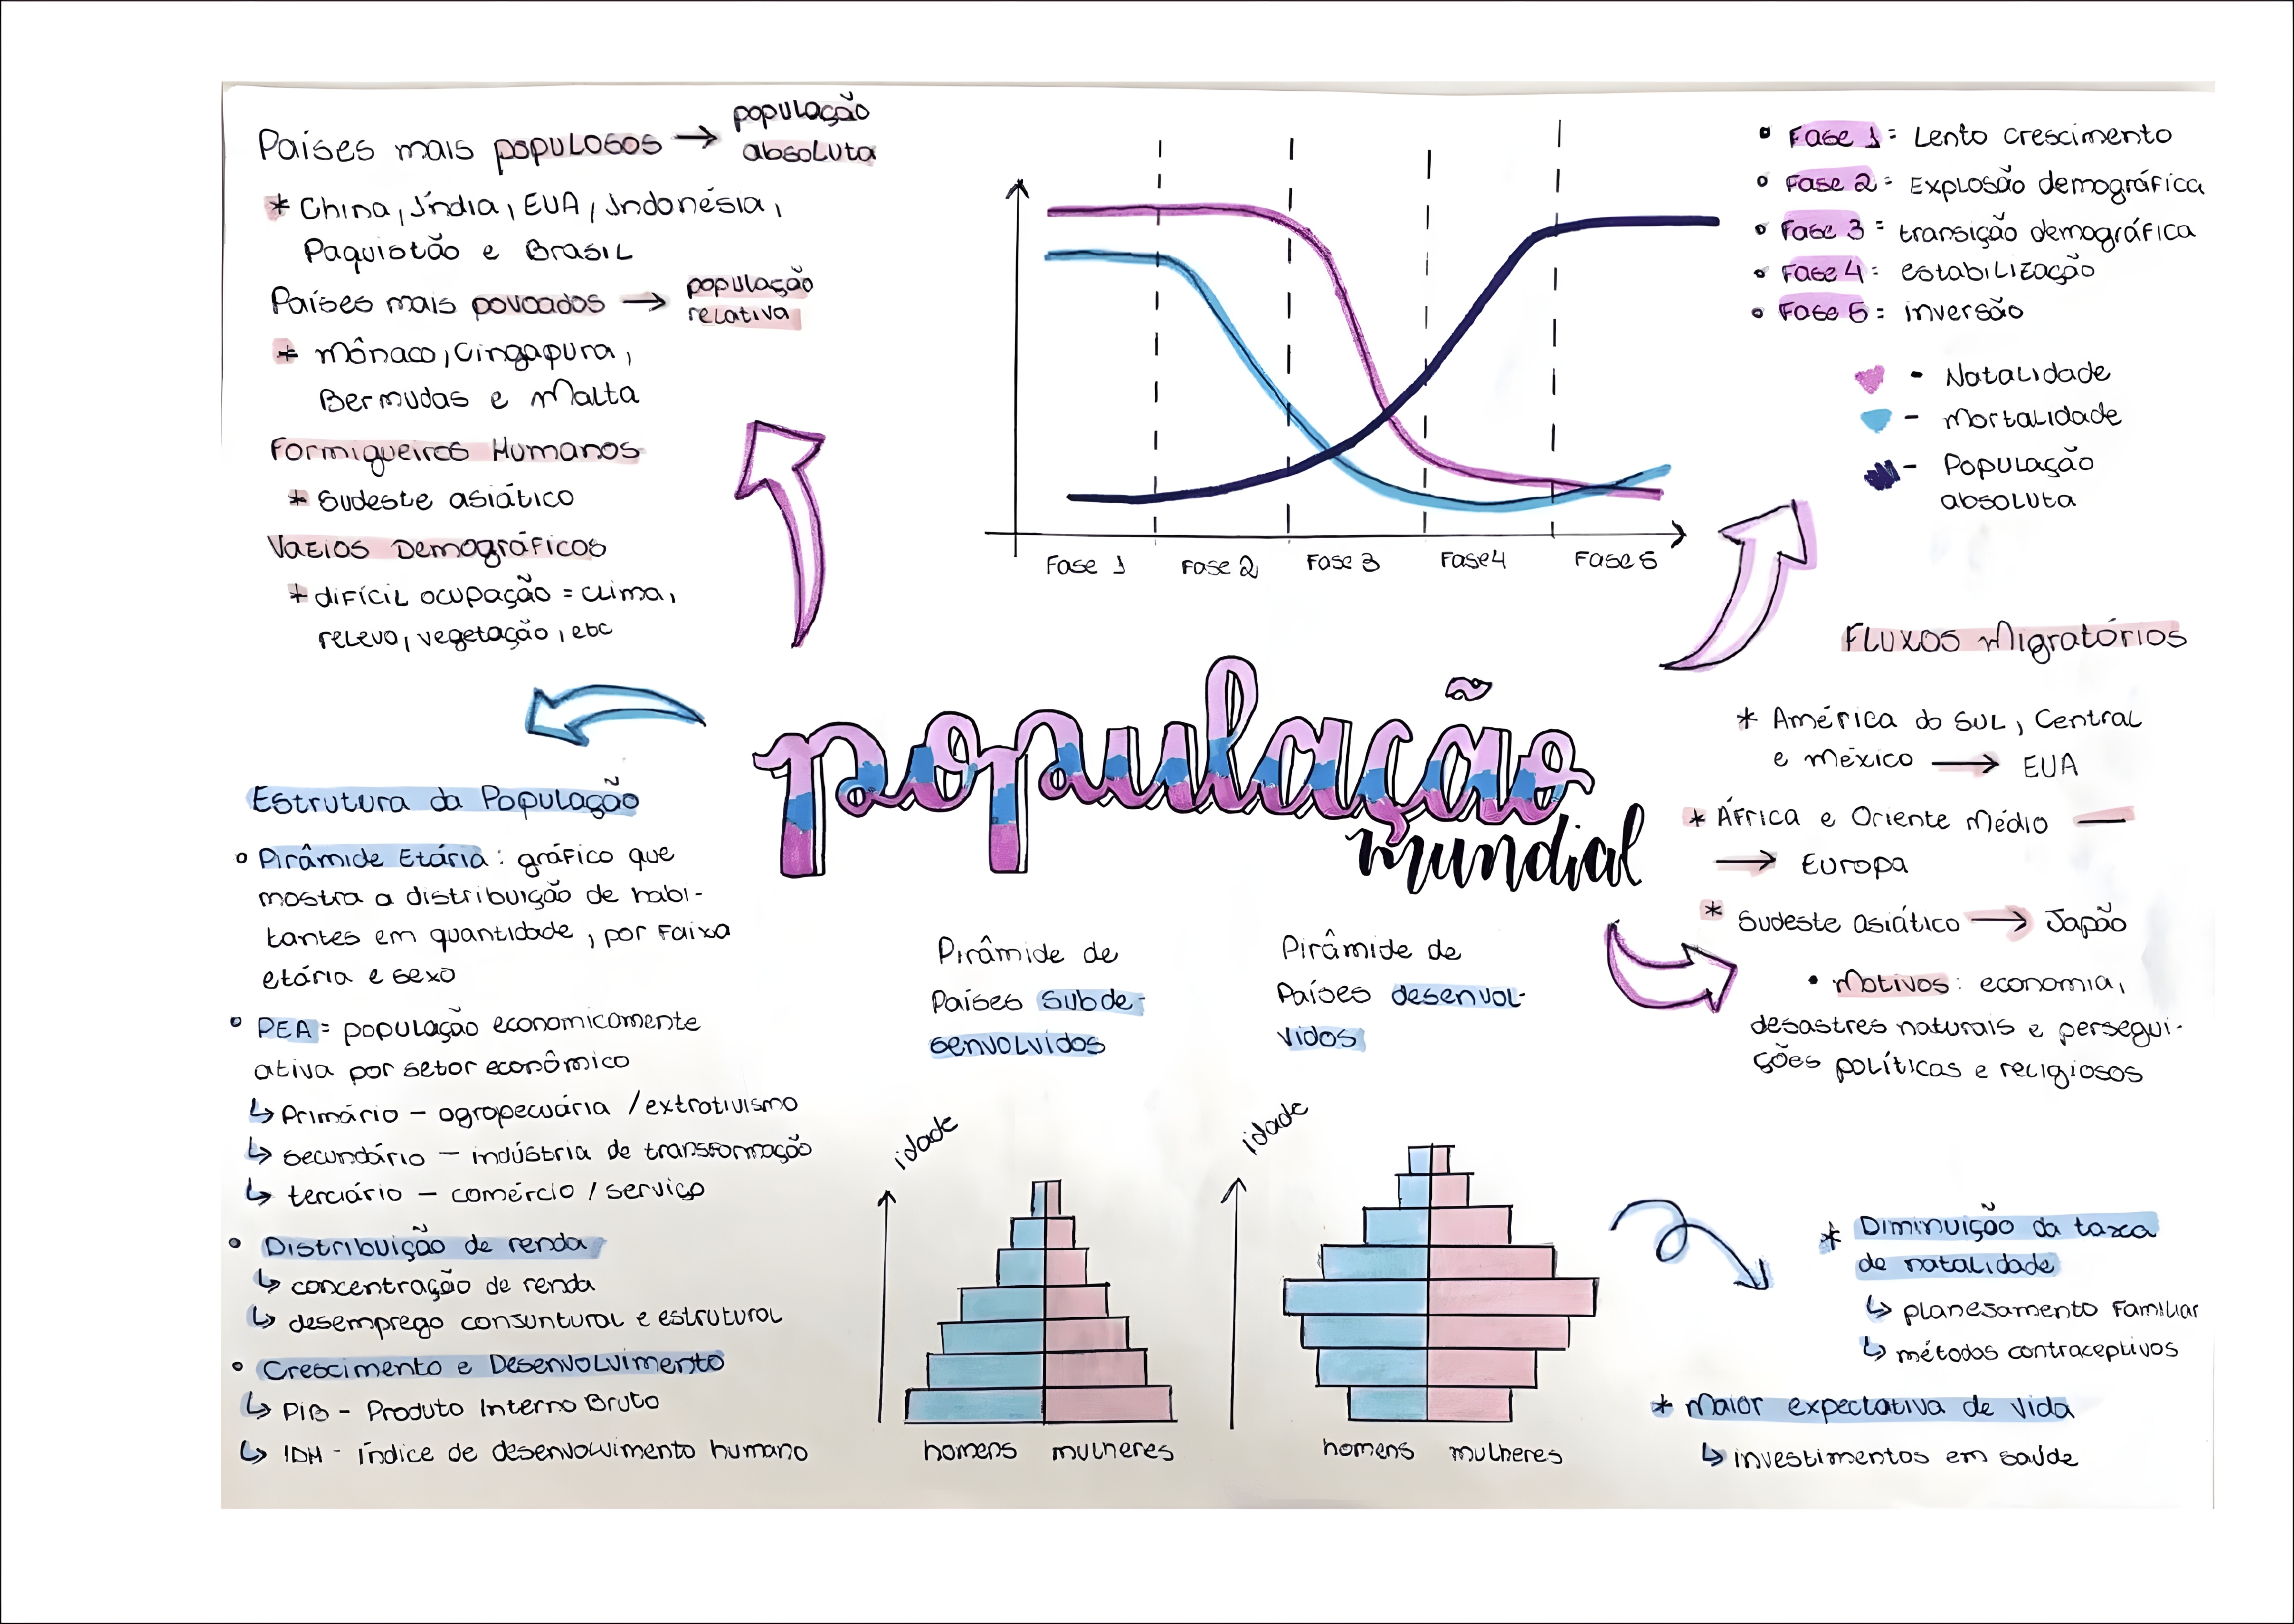 Países mais populosos → população
absoluta
* China, Índia, EUA, Indonésia,
Paquistão e Brasil
Países mais povoados → população
relativa
* Mônaco, Cingapura,
Bermudas e Malta
Formigueiros Humanos
* Sudeste asiático
Vazios Demográficos
* difícil ocupação = clima,
relevo, vegetação, etc
Fase 1
Fase 2
Fase 3
Fase 4
Fase 5
• Fase 1 = Lento crescimento
• Fase 2 = Explosão demográfica
• Fase 3 = transição demográfica
• Fase 4 = estabilização
• Fase 5 = inversão
- Natalidade
- Mortalidade
- População
absoluta
população
mundial
Fluxos Migratórios
* América do Sul, Central
e México → EUA
* África e Oriente Médio —
→ Europa
* Sudeste asiático → Japão
• Motivos: economia,
desastres naturais e persegui-
ções políticas e religiosos
Estrutura da População
• Pirâmide Etária: gráfico que
mostra a distribuição de habi-
tantes em quantidade, por faixa
etária e sexo
• PEA = população economicamente
ativa por setor econômico
↳ Primário - agropecuária / extrativismo
↳ secundário - indústria de transformação
↳ terciário - comércio / serviço
• Distribuição de renda
↳ concentração de renda
↳ desemprego conjuntural e estrutural
• Crescimento e Desenvolvimento
↳ PIB - Produto Interno Bruto
↳ IDH - Índice de desenvolvimento humano
Pirâmide de
Países subde-
senvolvidos
idade
homens mulheres
Pirâmide de
Países desenvol-
vidos
idade
homens mulheres
* Diminuição da taxa
de natalidade
↳ planejamento familiar
↳ métodos contraceptivos
* Maior expectativa de vida
↳ investimentos em saúde